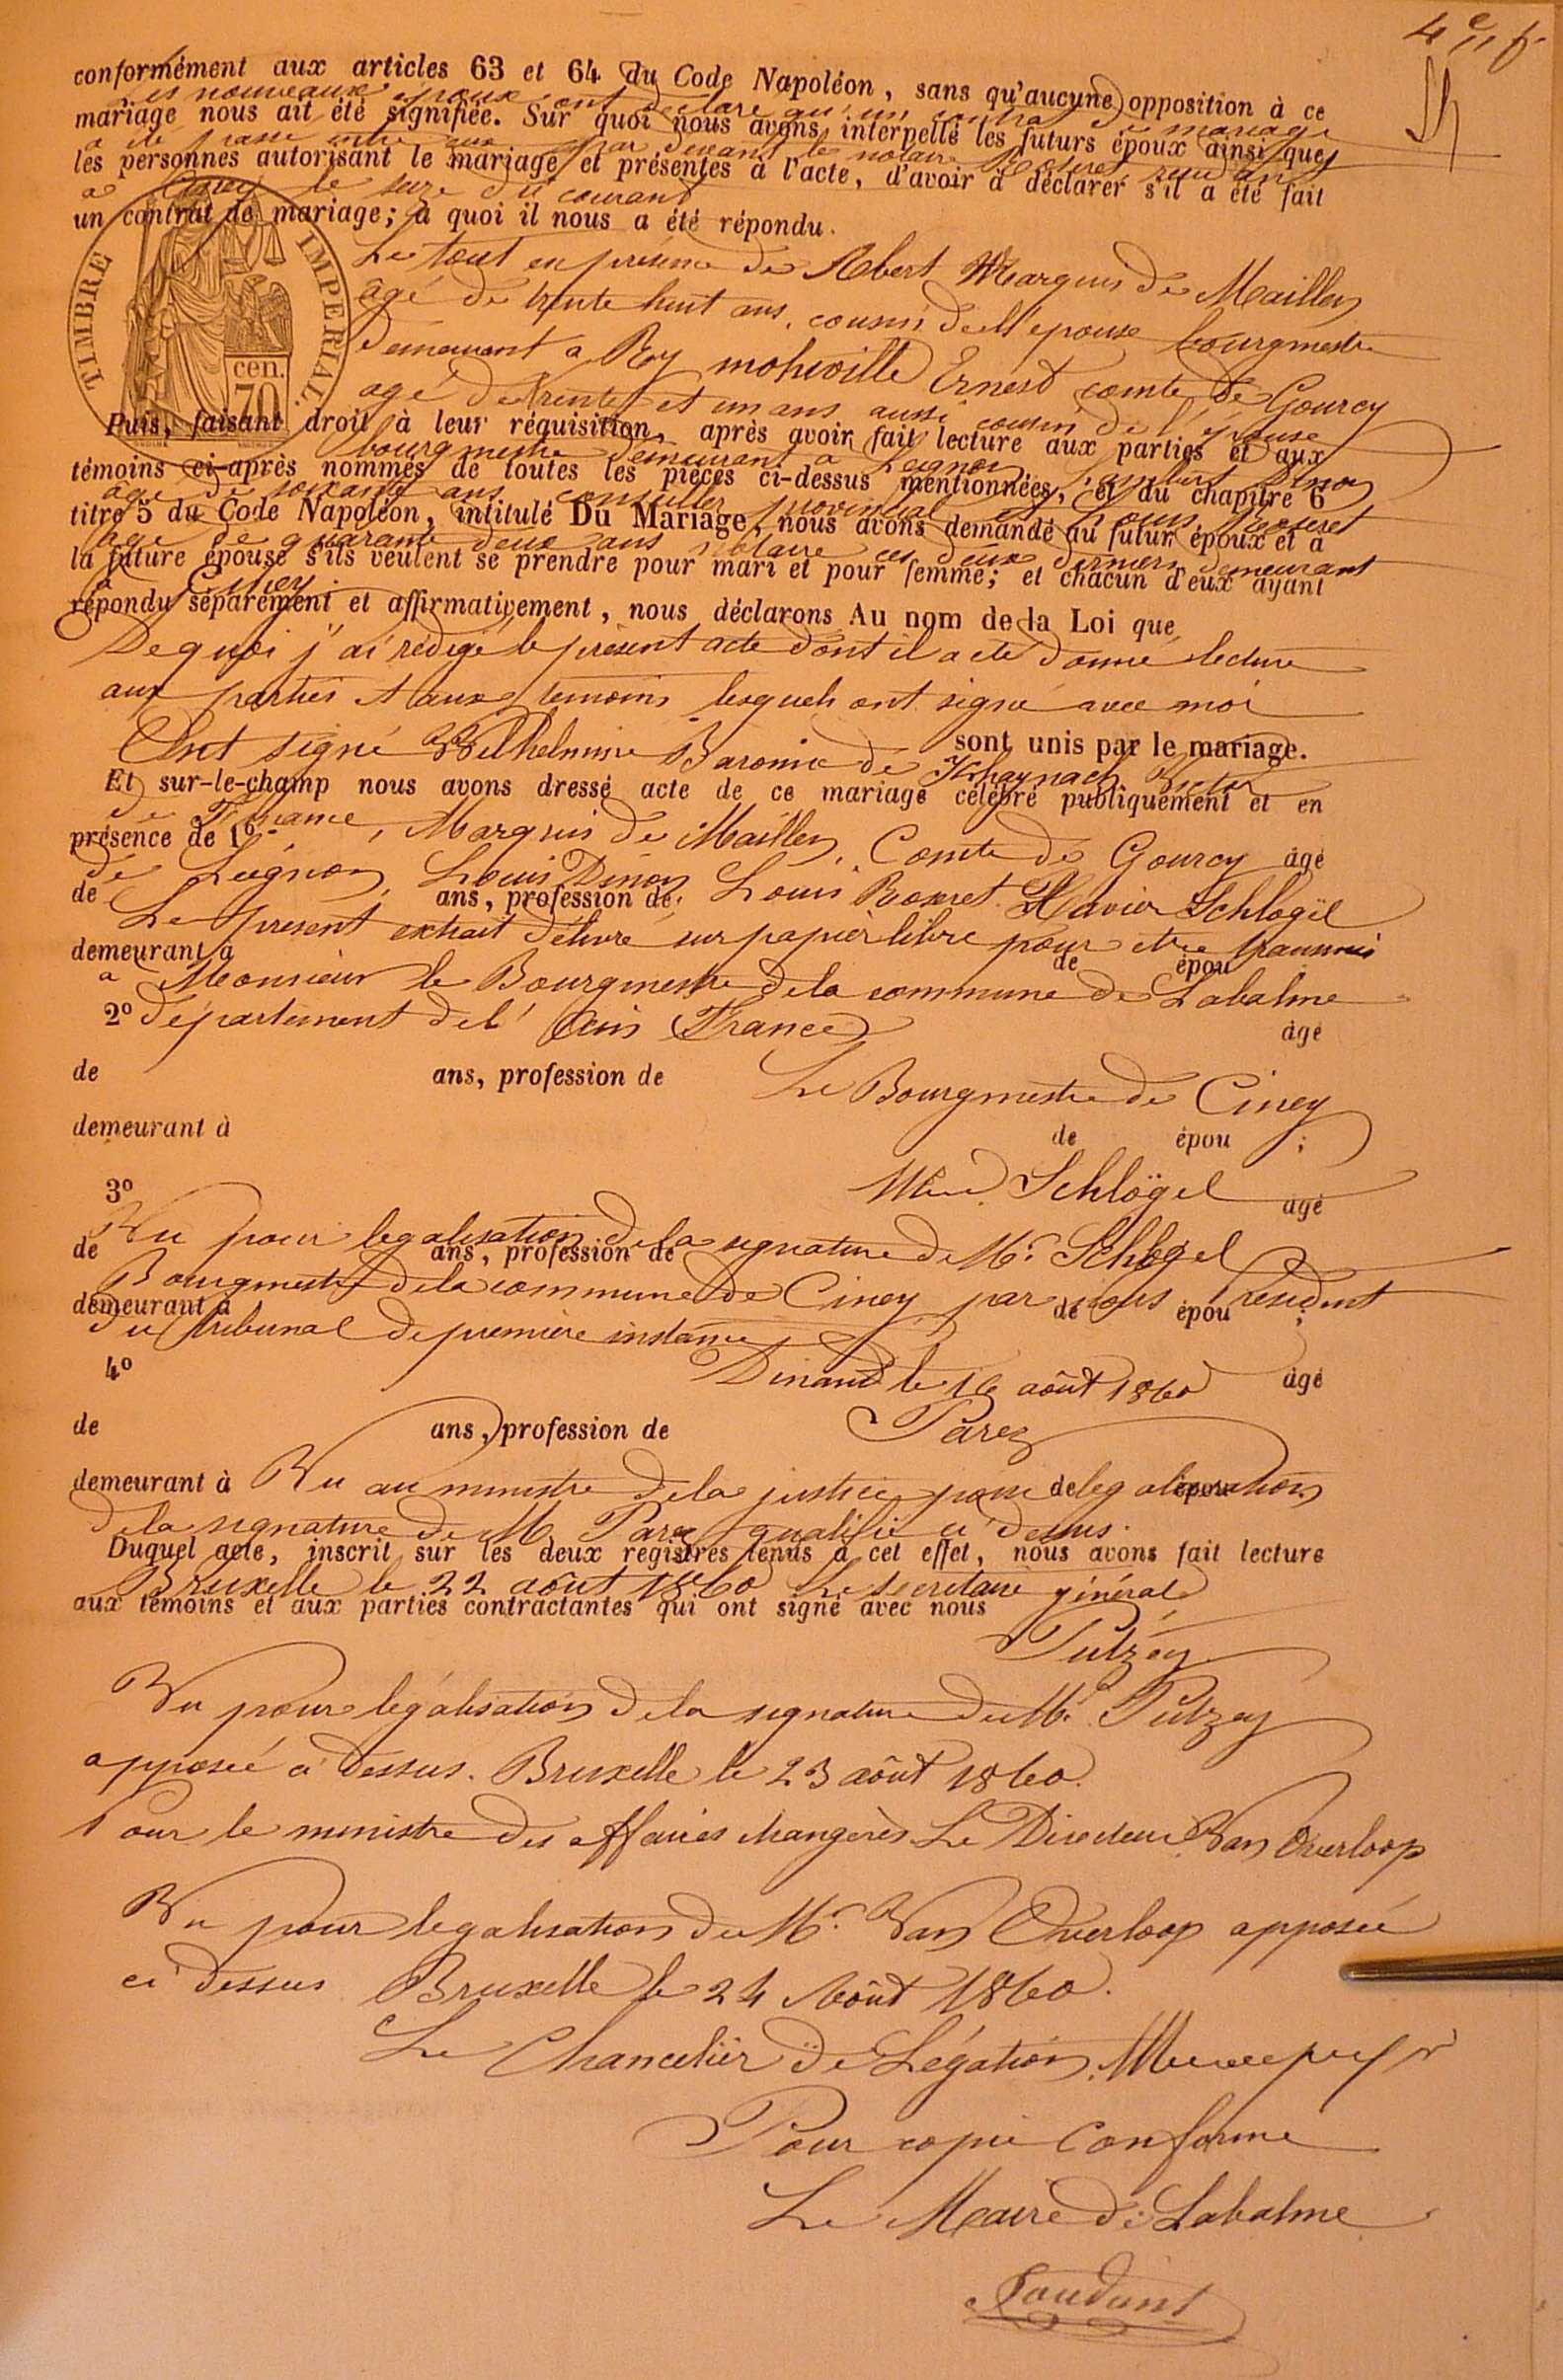 4e f.
conformément aux articles 63 et 64 du Code Napoléon, sans qu'aucune opposition à ce
les nouveaux époux ont déclaré qu'un contrat de mariage
mariage nous ait été signifiée. Sur quoi nous avons interpellé les futurs époux ainsi que
a été passé entre eux par devant le notaire résidant
les personnes autorisant le mariage et présentes à l'acte, d'avoir à déclarer s'il a été fait
a Ciney le seize du courant
un contrat de mariage; à quoi il nous a été répondu.
TIMBRE IMPERIAL.
cen.
70
Le tout en présence de Albert Marquis de Maillen
agé de trente huit ans, cousin de l'épouse bourgmestre
demeurant a Roy mohiville Ernest comte de Gourcy
agé de trente et un ans aussi cousin de l'épouse
Puis, faisant droit à leur réquisition, après avoir fait lecture aux parties et aux
bourgmestre demeurant a Leignon Dinon
témoins ci-après nommés de toutes les pièces ci-dessus mentionnées, et du chapitre 6
agé de soixante ans conseiller provincial et Louis
titre 5 du Code Napoléon, intitulé Du Mariage, nous avons demandé au futur époux et à
agé de quarante deux ans notaire ces deux derniers demeurant
la future épouse s'ils veulent se prendre pour mari et pour femme; et chacun d'eux ayant
a Ciney.
répondu séparément et affirmativement, nous déclarons Au nom de la Loi que
De quoi j'ai rédigé le présent acte dont il a été donné lecture
aux parties et aux temoins lesquels ont signé avec moi
Ont signé Wilhelmine Baronne de
sont unis par le mariage.
Et sur-le-champ nous avons dressé acte de ce mariage célébré publiquement et en
présence de 1º
Marquis de Maillen, Comte de Gourcy
âgé
de Leignon, Louis Dinon Louis Xavier Schlogël
de ans, profession de
Le présent extrait délivré sur papier libre pour etre transmis
demeurant à de épou
a Monsieur le Bourgmestre de la commune de Labalme
2º département de l'Ain (France)
âgé
de ans, profession de
Le Bourgmestre de Ciney
demeurant à de épou ;
Schlögel
3º âgé
Vu pour legalisation de la signature de Mr. Schlogel
de ans, profession de
Bourgmestre de la commune de Ciney par nous Président
demeurant à de épou ;
du tribunal de première instance
4º
Dinant le 16 août 1860
âgé
Parez
de ans, profession de
demeurant à de épou
Vu au ministre de la justice pour legalisation
de la signature de Mr Parez qualifié ci dessus.
Duquel acte, inscrit sur les deux registres tenus à cet effet, nous avons fait lecture
Bruxelle le 22 aout 1860 Le secretaire général
aux témoins et aux parties contractantes qui ont signé avec nous
Putzey
Vu pour légalisation de la signature de Mr. Putzey
apposée ci dessus. Bruxelle le 23 août 1860.
Pour le ministre des affaires étrangères Le Directeur Van Overloop
Vu pour legalisation de Mr. Van Overloop apposée
ci dessus Bruxelle le 24 Août 1860.
Le Chancelier de Légation.
Pour copie Conforme
Le Maire de Labalme